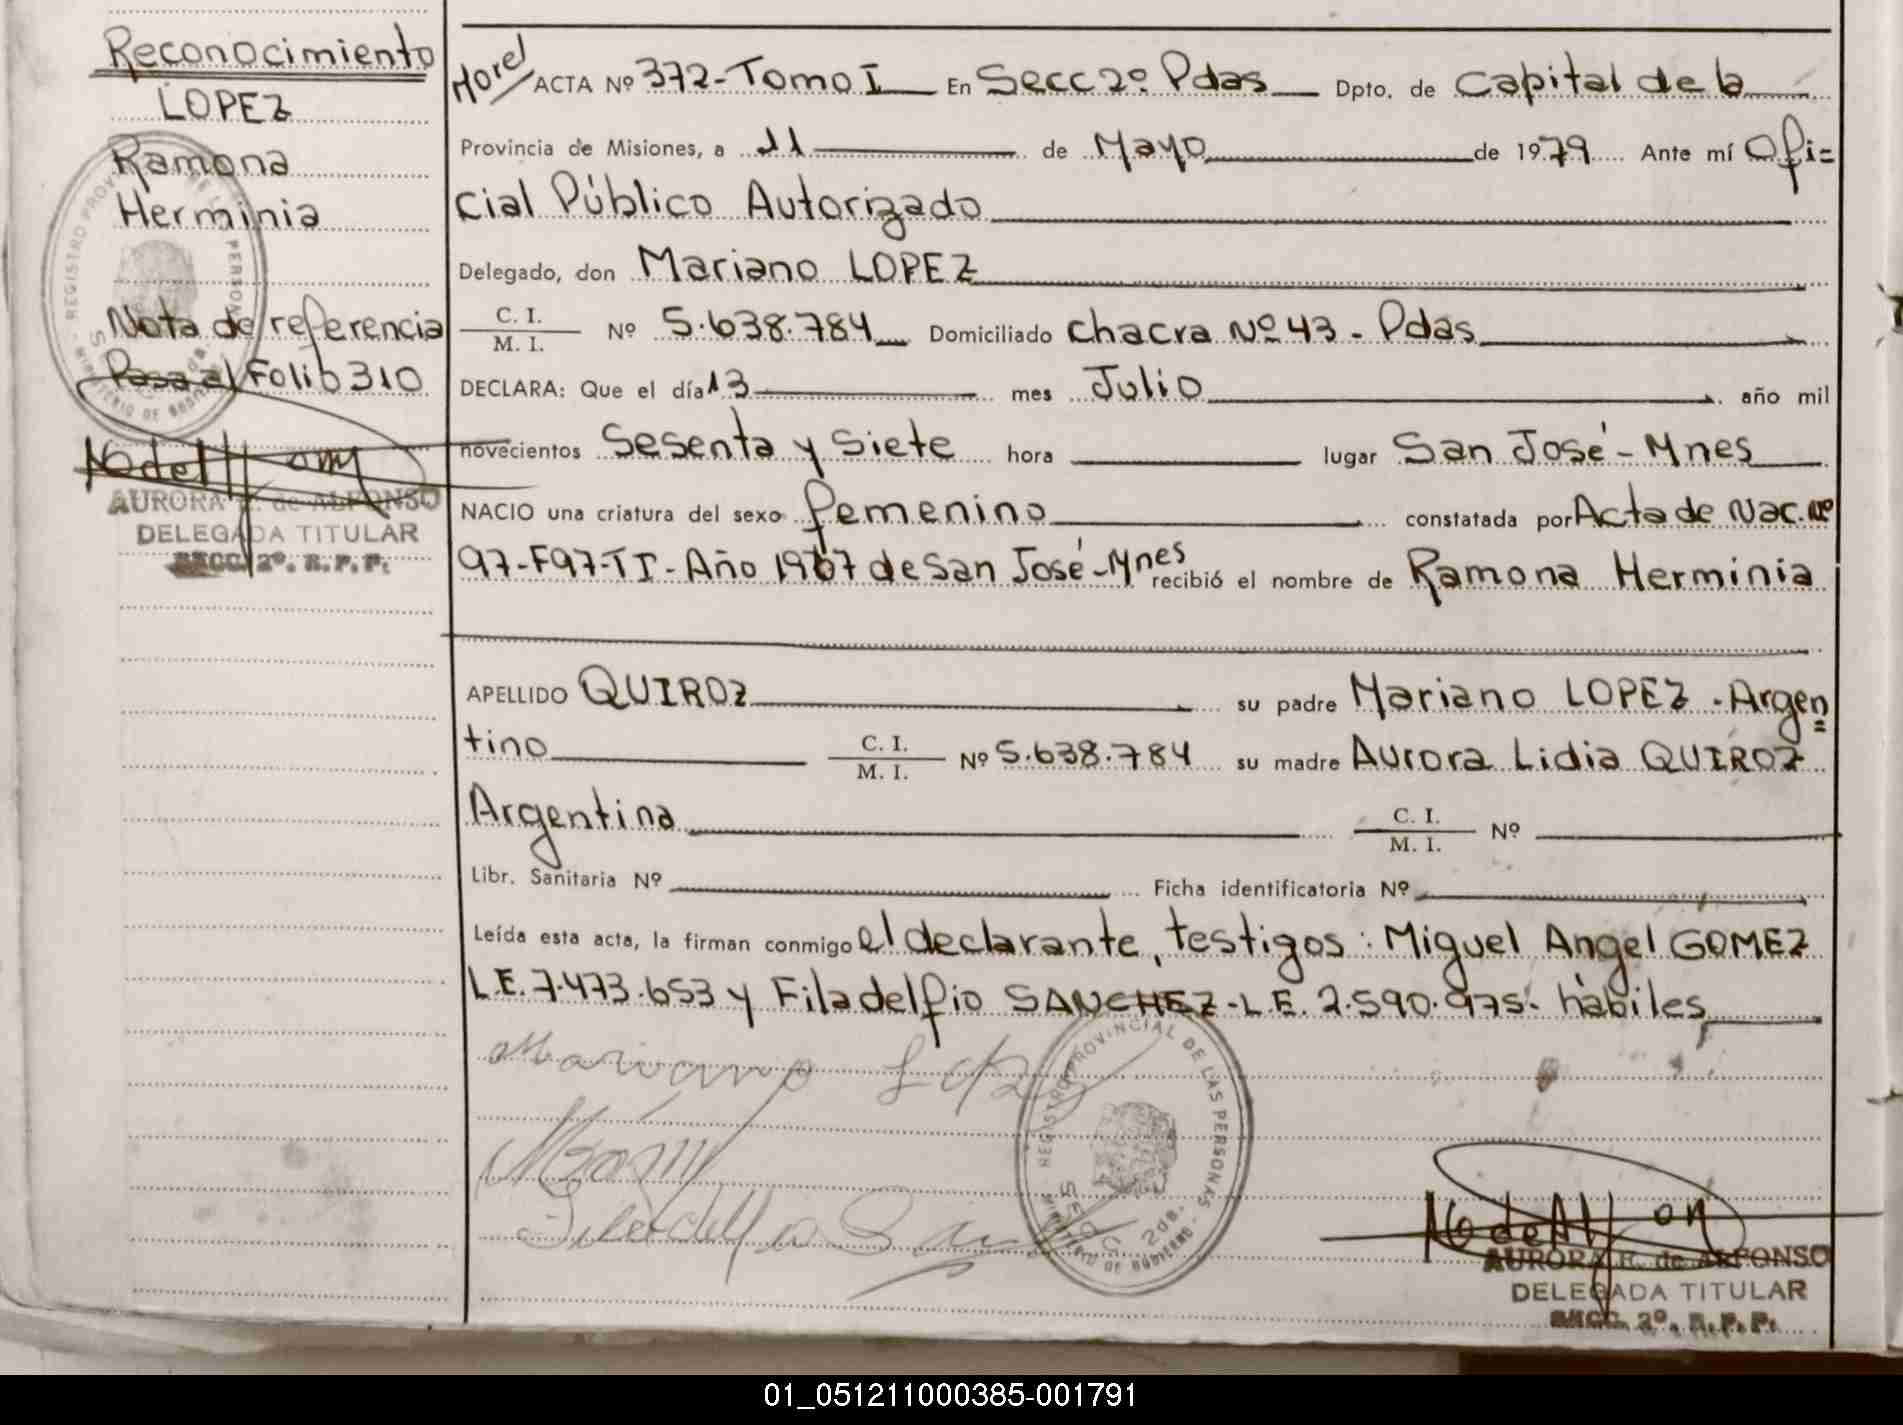 Reconocimiento
LOPEZ
Ramona
Herminia
Nota de referencia
Pasa al Folio 310
AURORA E. de ALFONSO
DELEGADA TITULAR
SECC. 2º. R. P. P.
ACTA Nº 372-Tomo I En Secc 2º. Pdas Dpto. de Capital de la
Provincia de Misiones, a 11 de Mayo de 1979 Ante mí Ofi=
cial Público Autorizado
Delegado, don Mariano LOPEZ
C. I. / M. I. Nº 5.638.784 Domiciliado chacra Nº 43 - Pdas
DECLARA: Que el día 13 mes Julio año mil
novecientos Sesenta y Siete hora lugar San José - Mnes
NACIO una criatura del sexo femenino constatada por Acta de Nac. Nº
97-F97-TI-Año 1967 de San José-Mnes recibió el nombre de Ramona Herminia
APELLIDO QUIROZ su padre Mariano LOPEZ - Argen=
tino C. I. / M. I. Nº 5.638.784 su madre Aurora Lidia QUIROZ
Argentina C. I. / M. I. Nº
Libr. Sanitaria Nº Ficha identificatoria Nº
Leída esta acta, la firman conmigo el declarante, testigos: Miguel Angel GOMEZ
L.E. 7.473.653 y Filadelfio SANCHEZ - L.E. 2.590.975- hábiles
Mariano Lopez
REGISTRO PROVINCIAL DE LAS PERSONAS
MINISTERIO DE GOBIERNO
AURORA E. de ALFONSO
DELEGADA TITULAR
SECC. 2º. R. P. P.
01_051211000385-001791